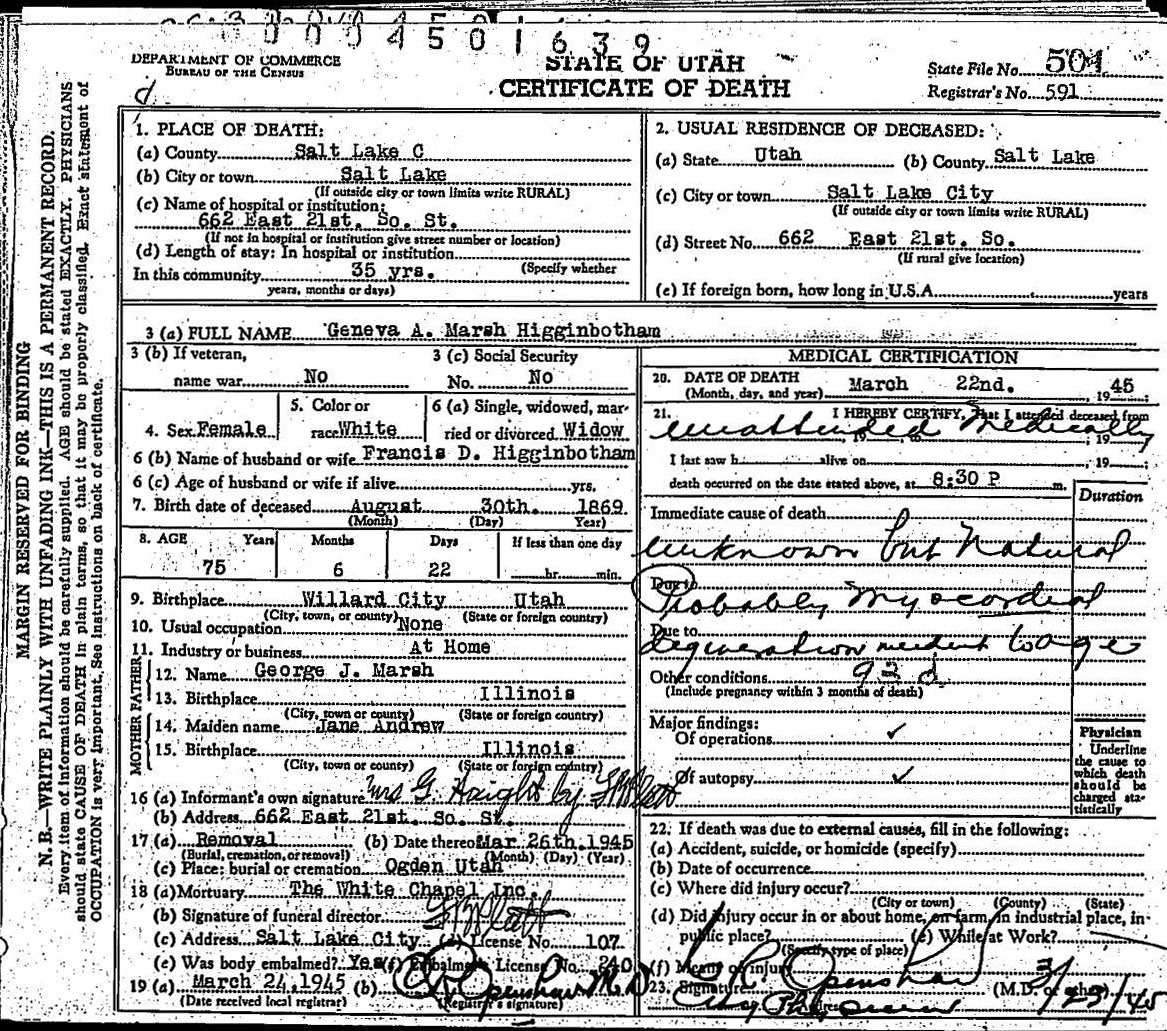 0004501639
DEPARTMENT OF COMMERCE
BUREAU OF THE CENSUS
d
STATE OF UTAH
CERTIFICATE OF DEATH
State File No. 501
Registrar's No. 591
MARGIN RESERVED FOR BINDING
N. B.—WRITE PLAINLY WITH UNFADING INK—THIS IS A PERMANENT RECORD.
Every item of information should be carefully supplied. AGE should be stated EXACTLY. PHYSICIANS
should state CAUSE OF DEATH in plain terms, so that it may be properly classified. Exact statement of
OCCUPATION is very important. See instructions on back of certificate.
1. PLACE OF DEATH:
(a) County Salt Lake C
(b) City or town Salt Lake
(If outside city or town limits write RURAL)
(c) Name of hospital or institution:
662 East 21st. So. St.
(If not in hospital or institution give street number or location)
(d) Length of stay: In hospital or institution
In this community 35 yrs. (Specify whether
years, months or days)
2. USUAL RESIDENCE OF DECEASED:
(a) State Utah (b) County Salt Lake
(c) City or town Salt Lake City
(If outside city or town limits write RURAL)
(d) Street No. 662 East 21st. So.
(If rural give location)
(e) If foreign born, how long in U.S.A. years
3 (a) FULL NAME Geneva A. Marsh Higginbotham
3 (b) If veteran, name war No
3 (c) Social Security No. No
4. Sex Female
5. Color or race White
6 (a) Single, widowed, married or divorced Widow
6 (b) Name of husband or wife Francis D. Higginbotham
6 (c) Age of husband or wife if alive yrs.
7. Birth date of deceased August 30th. 1869
(Month) (Day) Year)
8. AGE Years Months Days If less than one day
75 6 22 hr. min.
9. Birthplace Willard City Utah
(City, town, or county) (State or foreign country)
10. Usual occupation None
11. Industry or business At Home
FATHER
12. Name George J. Marsh
13. Birthplace Illinois
(City, town or county) (State or foreign country)
MOTHER
14. Maiden name Jane Andrew
15. Birthplace Illinois
(City, town or county) (State or foreign country)
16 (a) Informant's own signature Mrs G. Haight by
(b) Address 662 East 21st. So. St.
17 (a) Removal (b) Date thereof Mar 26th. 1945
(Burial, cremation, or removal) (Month) (Day) (Year)
(c) Place: burial or cremation Ogden Utah
18 (a) Mortuary The White Chapel Inc.
(b) Signature of funeral director
(c) Address Salt Lake City (d) License No. 107
(e) Was body embalmed? Yes (f) Embalmer License No. 240
19 (a) March 24, 1945 (b) Openshaw M.D.
(Date received local registrar) (Registrar's signature)
MEDICAL CERTIFICATION
20. DATE OF DEATH March 22nd. 19 45
(Month, day, and year)
21. I HEREBY CERTIFY, That I attended deceased from
unattended Medically
, 19 to , 19
I last saw h alive on , 19
death occurred on the date stated above, at 8:30 P m.
Duration
Immediate cause of death
Unknown but Natural
Due to
Probably Myocordial
Due to
Degeneration incident to age
Other conditions 93 d
(Include pregnancy within 3 months of death)
Major findings:
Of operations ✓
Of autopsy ✓
Physician
Underline
the cause to
which death
should be
charged sta-
tistically
22. If death was due to external causes, fill in the following:
(a) Accident, suicide, or homicide (specify)
(b) Date of occurrence
(c) Where did injury occur?
(City or town) (County) (State)
(d) Did injury occur in or about home, on farm, in industrial place, in-
public place? (e) While at Work?
(Specify type of place)
(f) Means of injury
23. Signature Openshaw (M.D. or other)
3/23/45